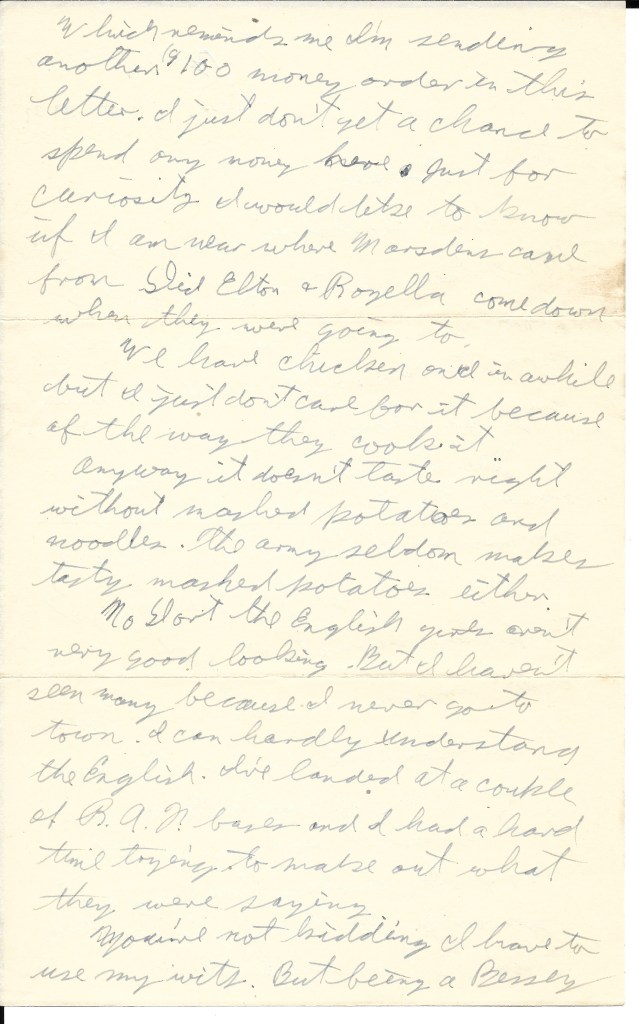 Which reminds me I'm sending
another $100 money order in this
letter. I just don't get a chance to
spend any money here. Just for
curiosity I would like to know
if I am near where Marsdens came
from Did Elton & Rozella come down
when they were going to.
We have chicken once in awhile
but I just dont care for it because
of the way they cook it
Anyway it doesn't taste right
without mashed potatoes and
noodles. The army seldom makes
tasty mashed potatoes either
No the English girls aren't
very good looking. But I haven't
seen many because I never go to
town. I can hardly understand
the English. I've landed at a couple
of R.A.F. bases and I had a hard
time trying to make out what
they were saying
You're not kidding I have to
use my wits. But being a Bessey